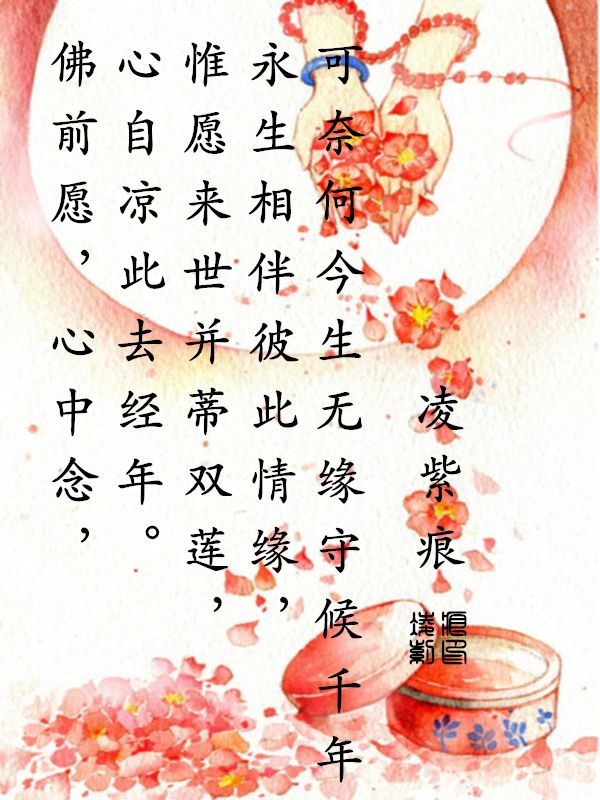 佛前愿，心中念，
心自凉此去经年。
惟愿来世并蒂双莲，
永生相伴彼此情缘，
可奈何今生无缘守候千年
凌紫痕